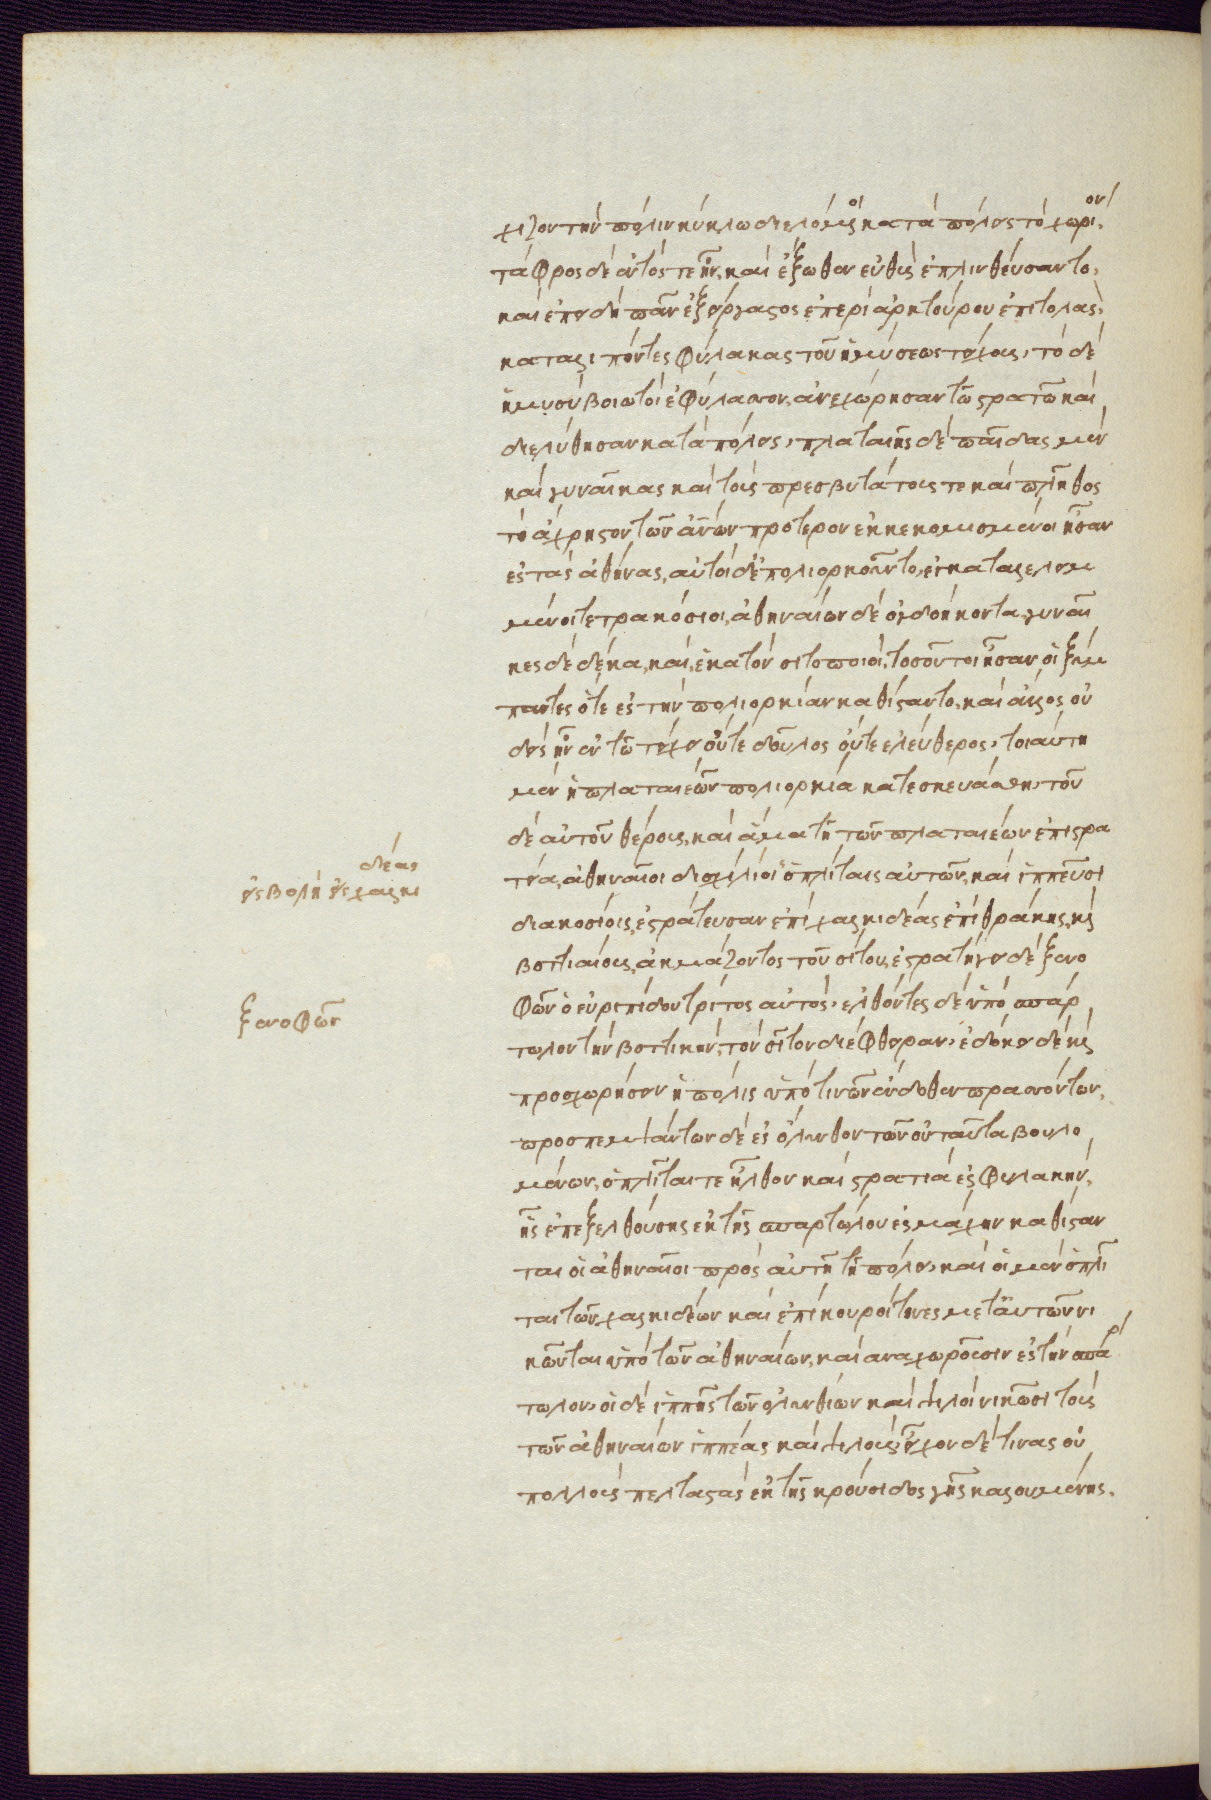 χιζον τὴν πόλιν κύκλω διελόμενοι κατὰ πόλεις τὸ χωρίον·
τάφρος δὲ ἐντός τε ἦν, καὶ ἔξωθεν εὐθὺς ἐπλινθεύσαντο,
καὶ ἐπειδὴ πᾶν ἐξείργαστο περὶ ἀρκτούρου ἐπιτολὰς,
καταλιπόντες φύλακας τοῦ ἡμίσεως τείχους, τὸ δὲ
ἥμυσυ βοιωτοὶ ἐφύλασσον, ἀνεχώρησαν τῶ στρατῶ καὶ
διελύθησαν κατὰ πόλεις, πλαταιῆς δὲ παῖδας μὲν
καὶ γυναῖκας καὶ τοὺς πρεσβυτάτους τε καὶ πλῆθος
τὸ ἄχρηστον τῶν ἀνων πρότερον ἐκκεκομισμένοι ἦσαν
ἐς τὰς ἀθήνας, αὐτοὶ δὲ ἐπολιορκοῦντο, ἐγκαταλελειμ
μένοι τετρακόσιοι, ἀθηναίων δὲ ὀγδοήκοντα, γυναῖ
κες δὲ δέκα, καὶ, ἑκατὸν σιτοποιοί, τοσοῦτοι ἦσαν οἱ ξύμ
παντες ὅτε ἐς τὴν πολιορκίαν καθίσταντο, καὶ ἄλλος οὐ
δεὶς ἦν ἐν τῶ τείχει οὔτε δοῦλος οὔτε ἐλεύθερος, τοιαύτη
μὲν ἡ πλαταιεῶν πολιορκία κατεσκευάσθη, τοῦ
δὲ αὐτοῦ θέρους, καὶ ἅμα τῆ τῶν πλαταιέων ἐπιστρα
τεία, ἀθηναῖοι δισχιλίοις ὁπλίταις αὐτῶν, καὶ ἱππεῦσι
διακοσίοις, ἐστράτευσαν ἐπὶ χαλκιδέας ἐπὶ θράκης, καὶ
βοττιαίους, ἀκμάζοντος τοῦ σίτου, ἐστρατήγει δὲ ξενο
φῶν ὁ εὐριπίδου τρίτος αὐτός, ἐλθόντες δὲ ὑπὸ σπάρ
τωλον τὴν βοττικὴν, τὸν σῖτον διέφθειραν, ἐδόκει δὲ καὶ
προσχωρήσειν ἡ πόλις ὑπό τινων ἔνδοθεν πρασσόντων,
προσπεμψάντων δὲ ἐς ὄλυνθον τῶν οὐ ταῦτα βουλο
μένων, ὁπλῖταί τε ἦλθον καὶ στρατιὰ ἐς φυλακήν,
ἧς ἐπεξελθούσης ἐκ τῆς σπαρτώλου ἐς μάχην καθίσταν
ται οἱ ἀθηναῖοι πρὸς αὐτῆ τῆ πόλει, καὶ οἱ μὲν ὁπλῖ
ται τῶν χαλκιδέων καὶ ἐπίκουροί τινες μετ αὐτῶν νι
κῶνται ὑπὸ τῶν ἀθηναίων, καὶ ἀναχωροῦσιν ἐς τὴν σπάρ
τωλον, οἱ δὲ ἱππῆς τῶν ὀλυνθίων καὶ ψιλοὶ νικῶσι τοὺς
τῶν ἀθηναίων ἱππέας καὶ ψιλούς, εἶχον δέ τινας οὐ
πολλοὺς πελταστὰς ἐκ τῆς κρούσιδος γῆς καλουμένης.
δέας
ἐσβολὴ ἐς χαλκι
ξενοφῶν